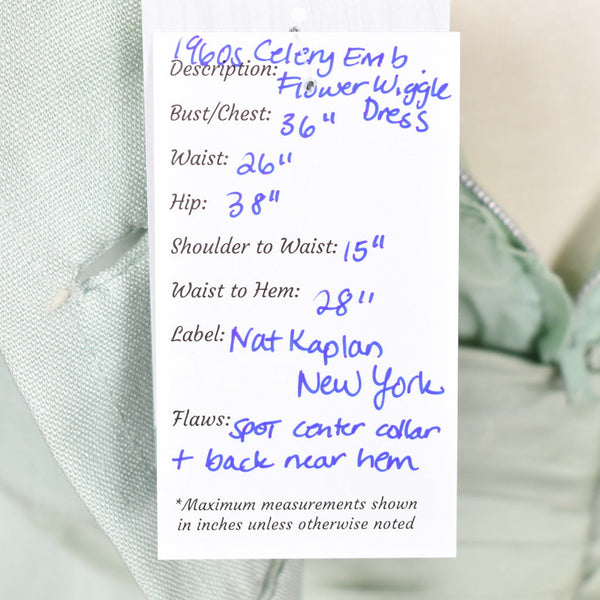 1960s Celery Emb.
Description: Flower Wiggle
Dress
Bust/Chest: 36"
Waist: 26"
Hip: 38"
Shoulder to Waist: 15"
Waist to Hem: 28"
Label: Nat Kaplan
New York
Flaws: Spot center collar
+ back near hem
*Maximum measurements shown
in inches unless otherwise noted